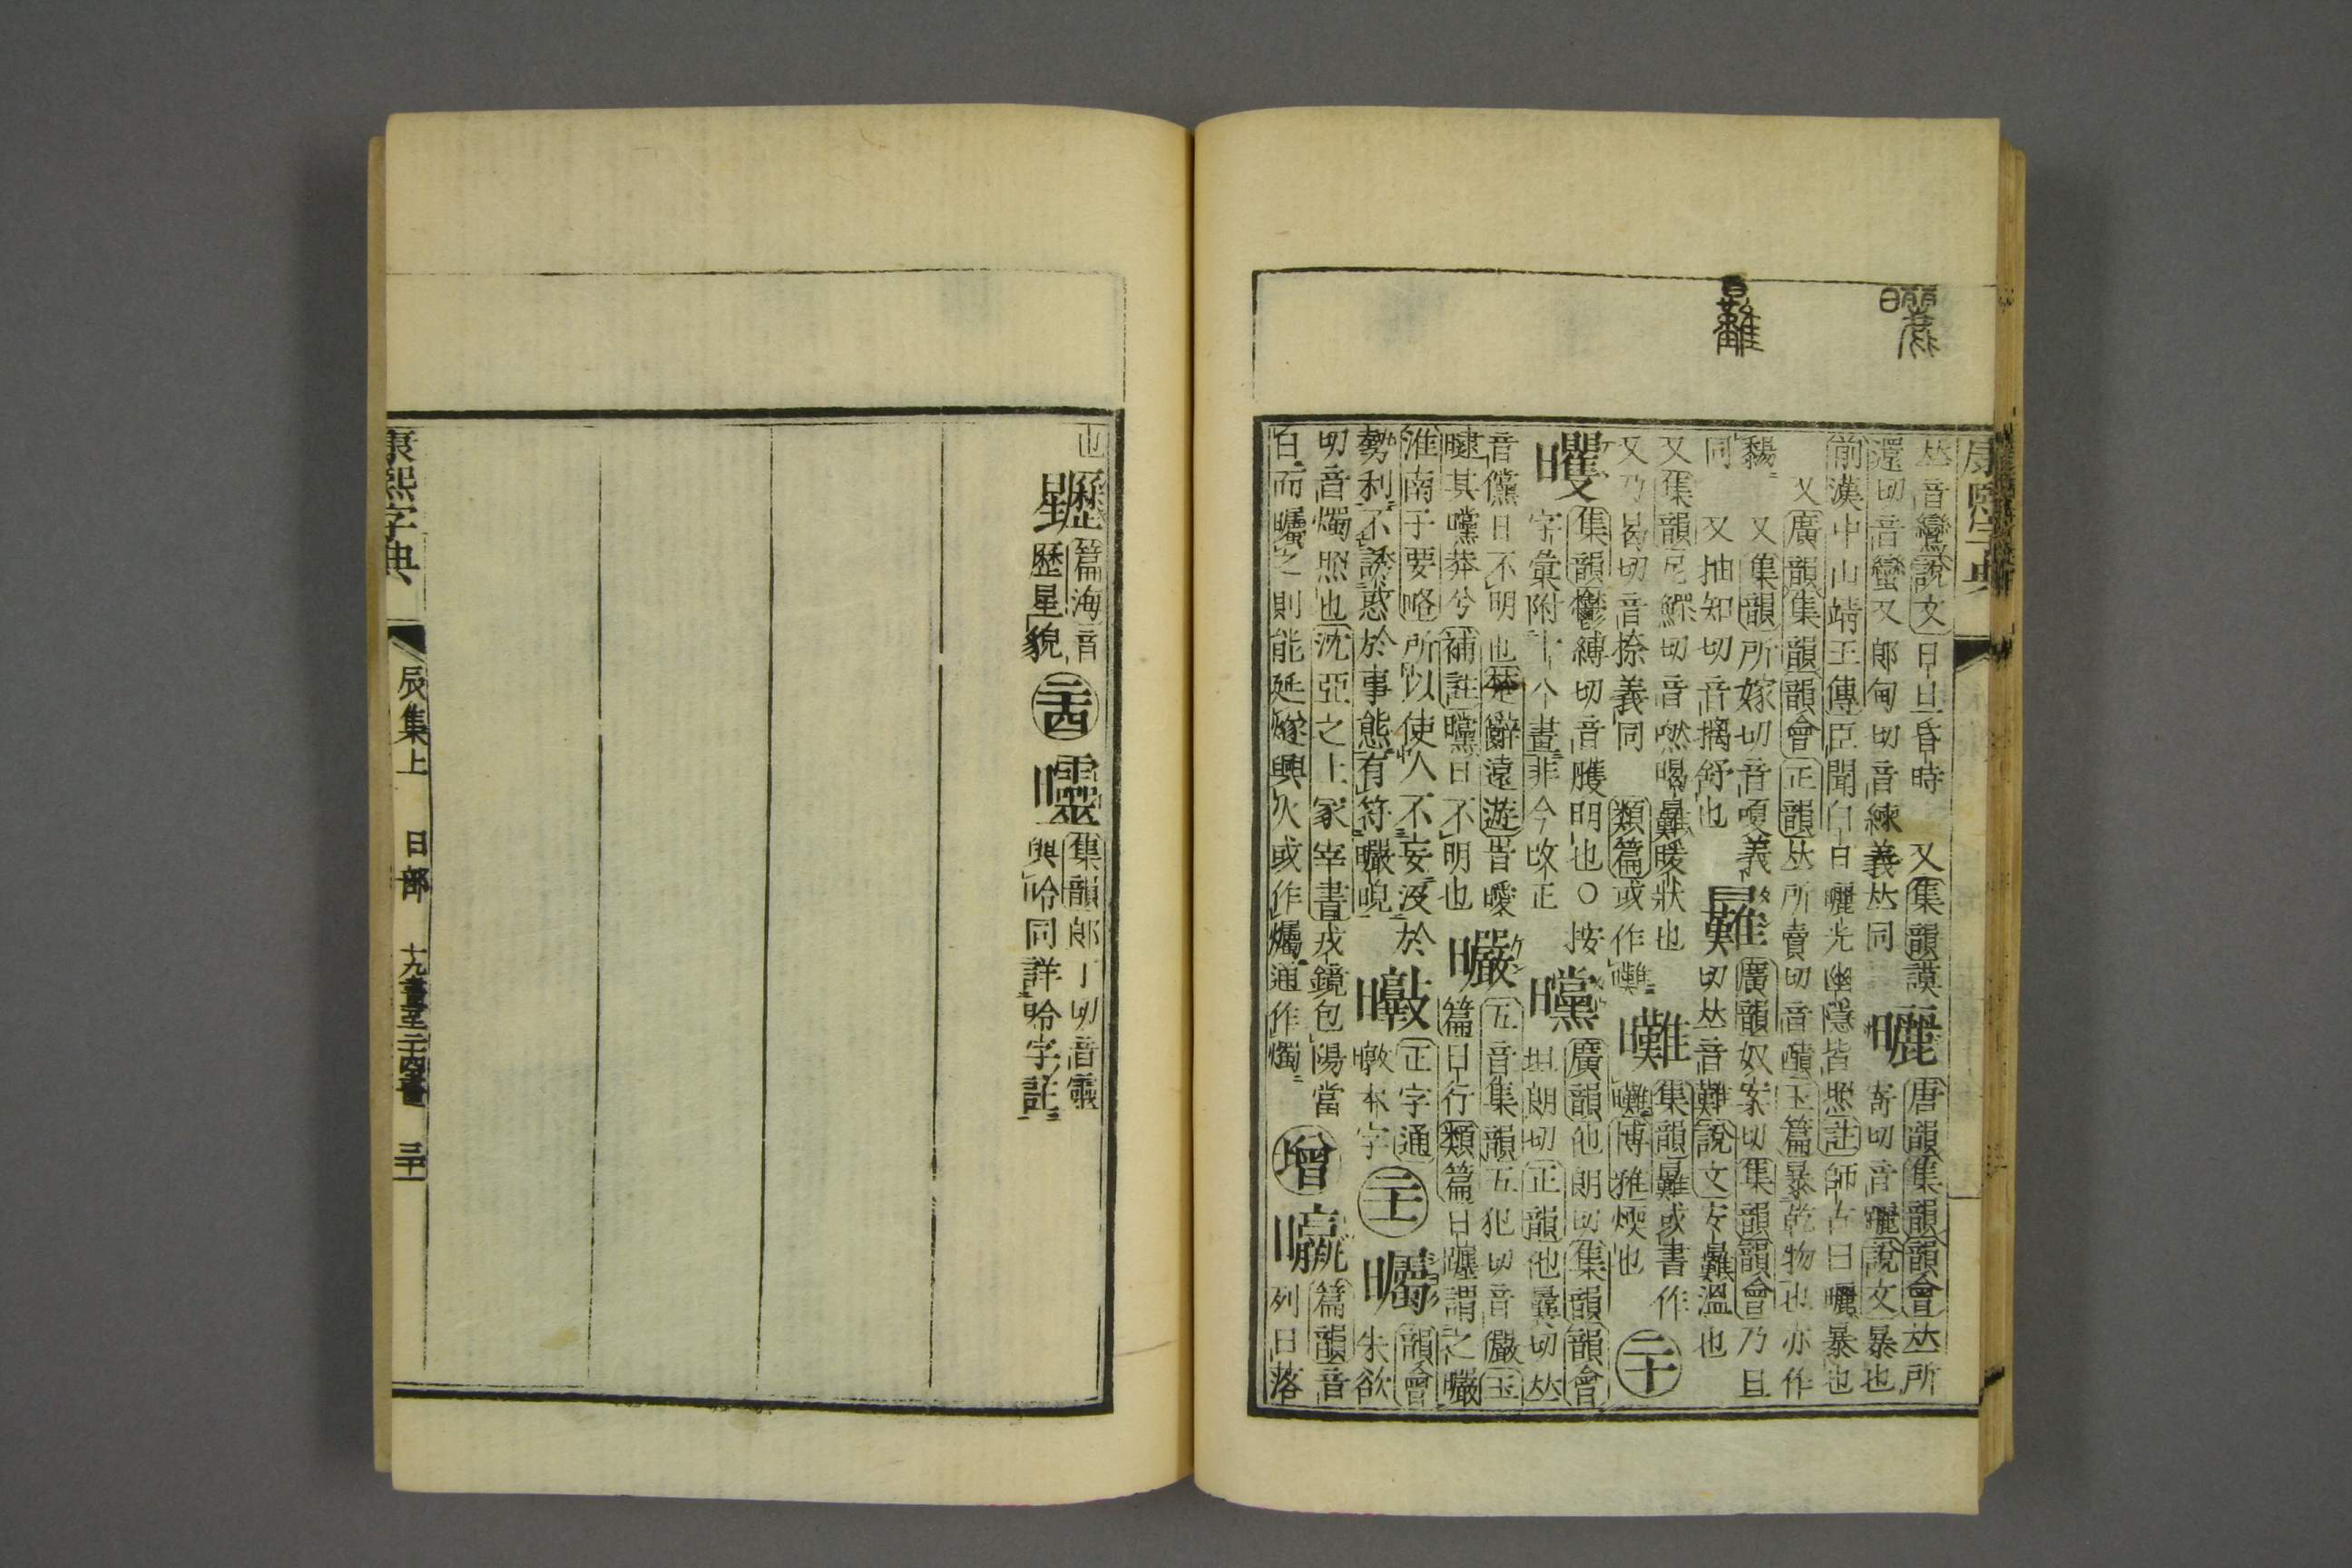 康熙字典
𠀤音鸞說文日旦昏時　又集韻謨
還切音蠻又郞甸切音練義𠀤同
曬
唐韻集韻韻會𠀤所
寄切音說文暴也
前漢中山靖王傳臣聞白日曬光幽隱皆照註師古曰曬暴也
又廣韻集韻韻會正韻𠀤所賣切音玉篇暴乾物也亦作
又集韻所嫁切音嗄義
同　又抽知切音摛舒也
㬮
廣韻奴案切集韻韻會乃旦
切𠀤音難說文安㬮溫也
又集韻尼鰥切音暍㬮煖狀也
又乃曷切音捺義同　類篇或作曬
集韻㬮或書作
博雅煗也
二十
集韻鬱縛切音臒明也○按
字彙附十八畫非今改正
曭
廣韻他朗切集韻韻會
坦朗切正韻他曩切𠀤
音儻日不明也楚辭遠遊皆曖
曃其曭莽兮補註曭日不明也
曮
五音集韻五犯切音儼玉
篇日行類篇日躔謂之曮
淮南子要略所以使人不妄沒於
勢利不誘惑於事態有符曮晲
正字通
暾本字
二十一
曯
韻會
朱欲
切音燭照也沈亞之上冢宰書戎鏡包陽當
百而曯之則能延燧興火或作爥通作燭
增
篇韻音
列日落
也
篇海音
歷星貌
二十四
集韻郞丁切音靈
與昤同詳昤字註
康熙字典　辰集上　日部　十九畫至二十四畫　三十一